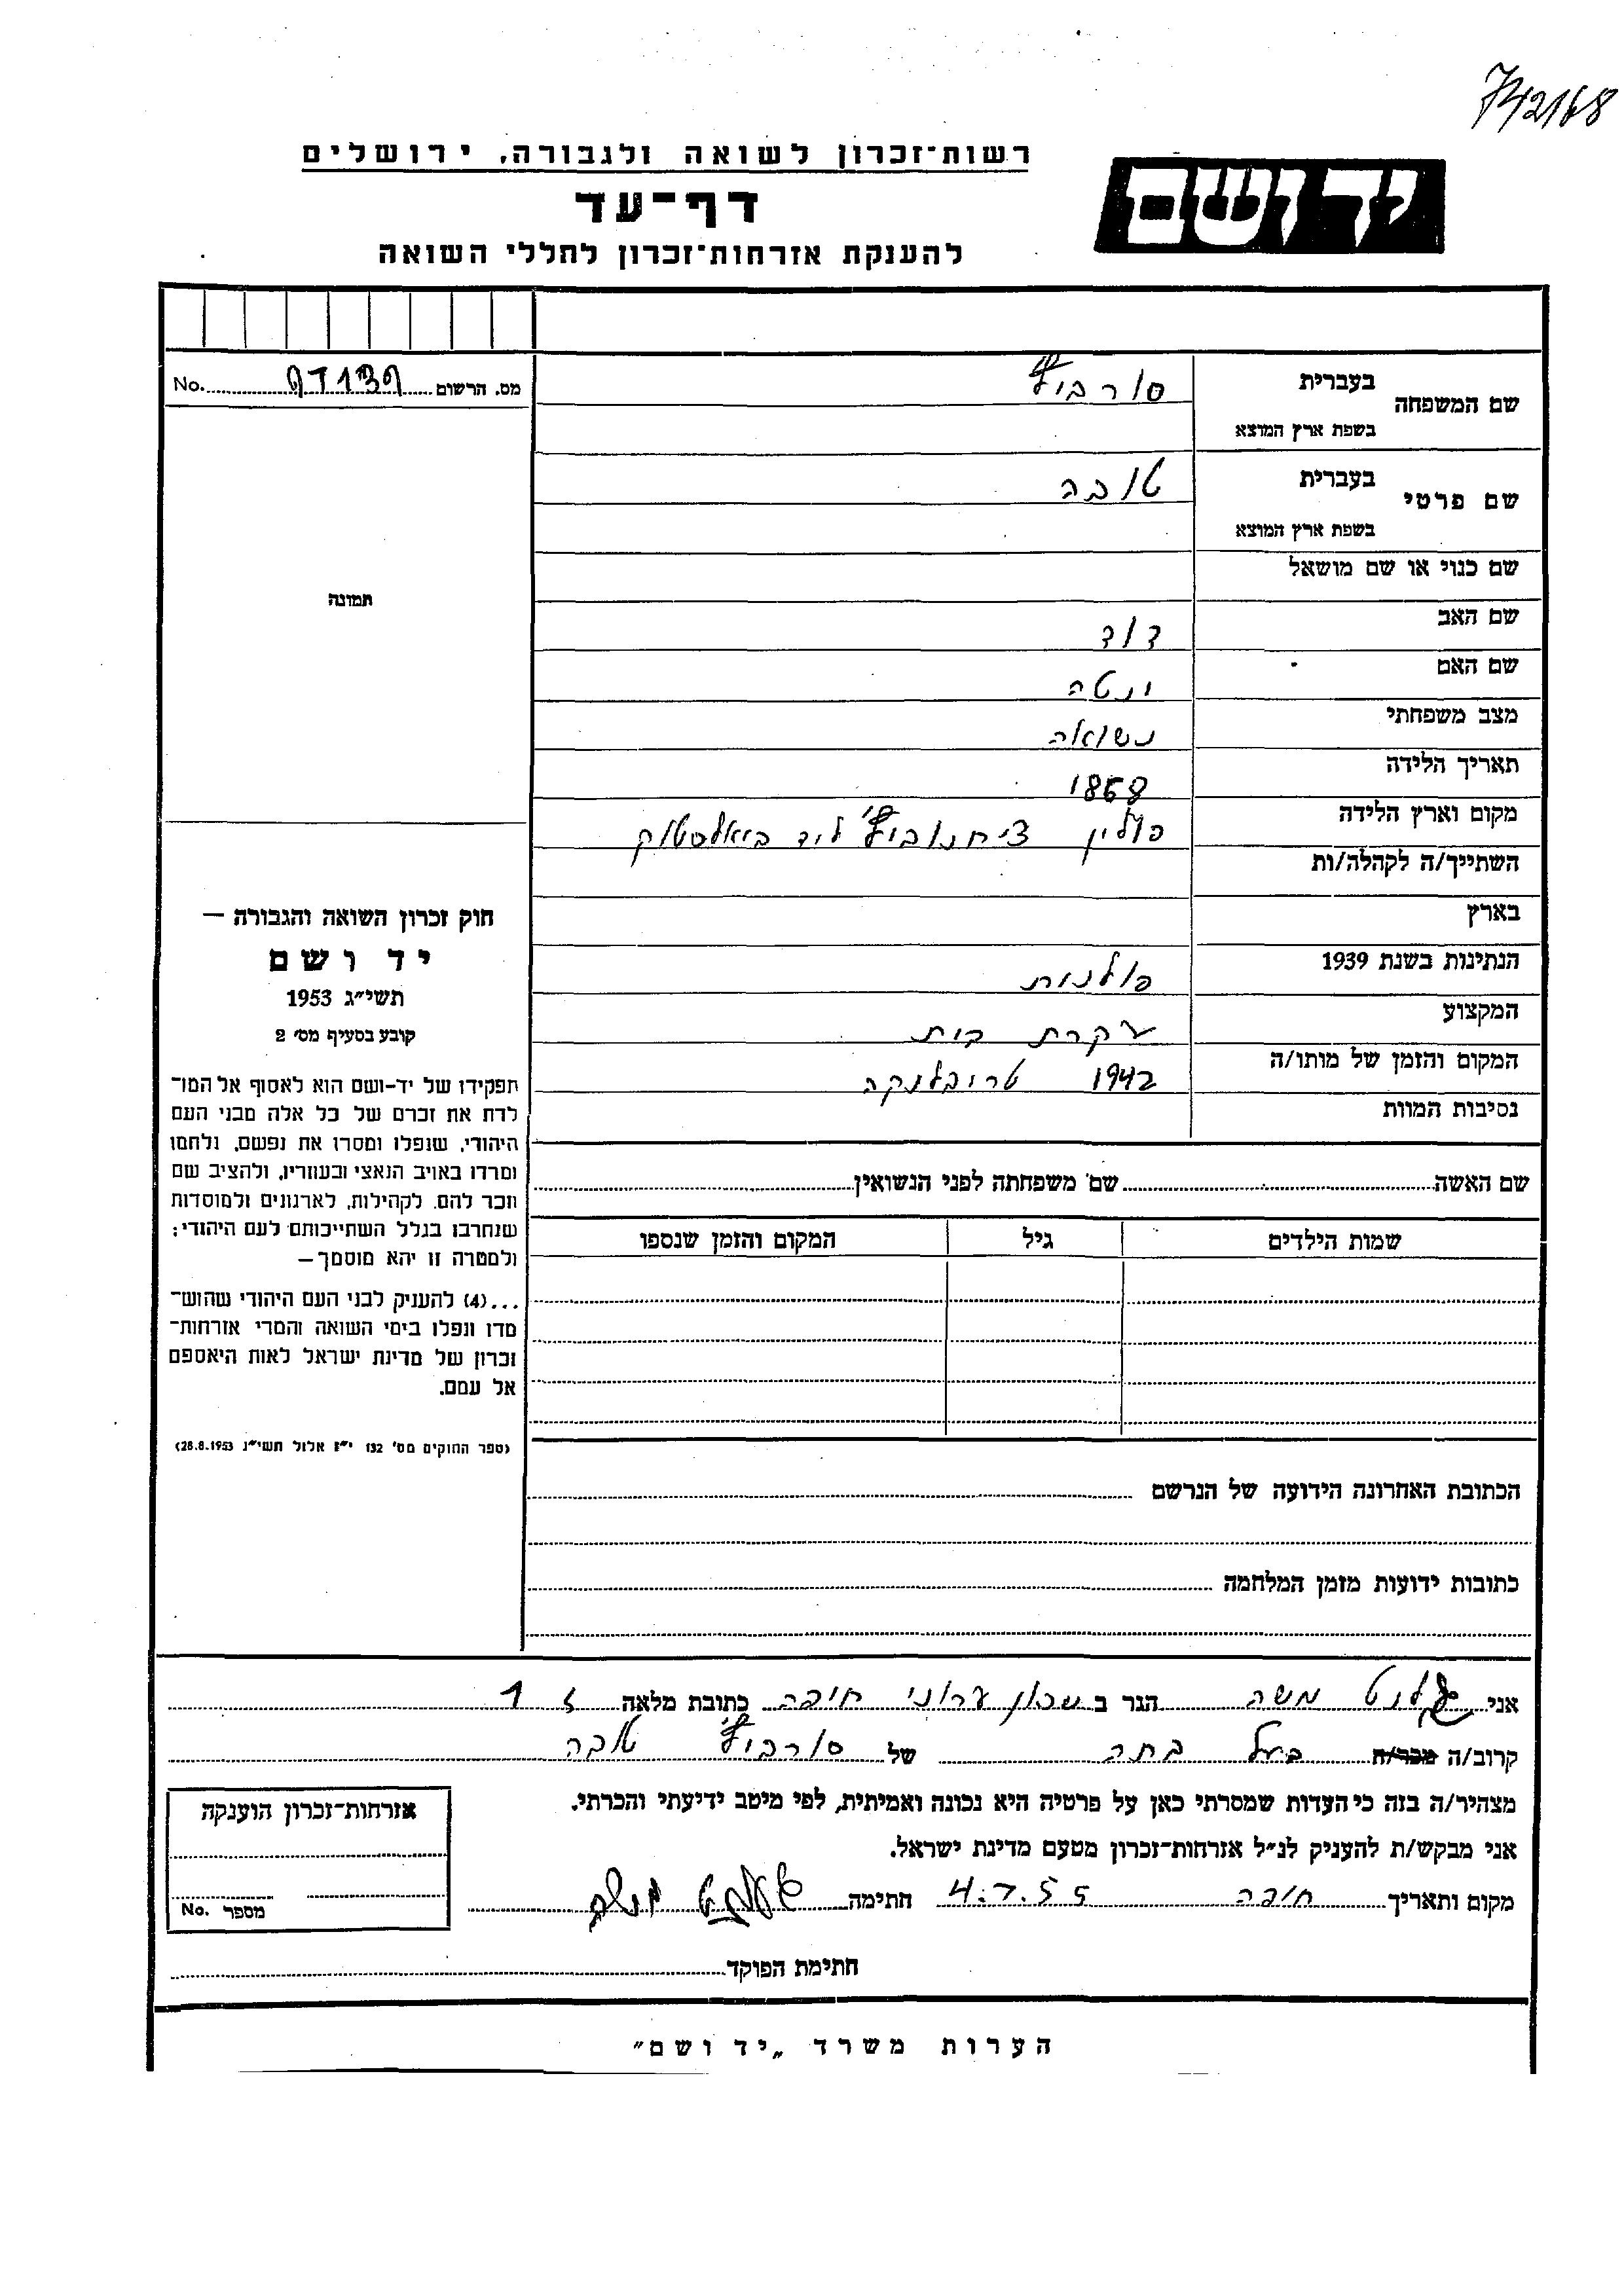 742168
רשות־זכרון לשואה ולגבורה, ירושלים
יד ושם
דף־עד
להענקת אזרחות־זכרון לחללי השואה
מס. הרשום No.
שם המשפחה בעברית סורביץ'
בשפת ארץ המוצא
שם פרטי בעברית טובה
בשפת ארץ המוצא
שם כנוי או שם מושאל
תמונה
שם האב דוד
שם האם ינטה
מצב משפחתי נשואה
תאריך הלידה 1868
מקום וארץ הלידה פולין ציחנוביץ' ליד ביאלסטוק
השתייך/ה לקהלה/ות
בארץ
הנתינות בשנת 1939 פולנית
המקצוע עקרת בית
המקום והזמן של מותו/ה 1942 טריבלינקה
נסיבות המוות
חוק זכרון השואה והגבורה —
יד ושם
תשי״ג 1953
קובע בסעיף מס׳ 2
תפקידו של יד-ושם הוא לאסוף אל המו־
לדת את זכרם של כל אלה מבני העם
היהודי, שנפלו ומסרו את נפשם, נלחמו
ומרדו באויב הנאצי ובעוזריו, ולהציב שם
וזכר להם, לקהילות, לארגונים ולמוסדות
שנחרבו בגלל השתייכותם לעם היהודי;
ולמטרה זו יהא מוסמך—
...(4) להעניק לבני העם היהודי שהוש־
מדו ונפלו בימי השואה והמרי אזרחות־
זכרון של מדינת ישראל לאות היאספם
אל עמם.
(ספר החוקים מס׳ 132 י״ז אלול תשי״ג 28.8.1953)
שם האשה שם משפחתה לפני הנשואין
שמות הילדים גיל המקום והזמן שנספו
הכתובת האחרונה הידועה של הנרשם
כתובות ידועות מזמן המלחמה
אני משה הגר ב שכון עירוני חיפה כתובת מלאה 1
קרוב/ה מכר/ה בעל בתה של סורביץ' טובה
מצהיר/ה בזה כי העדות שמסרתי כאן על פרטיה היא נכונה ואמיתית, לפי מיטב ידיעתי והכרתי.
אני מבקש/ת להעניק לנ״ל אזרחות־זכרון מטעם מדינת ישראל.
מקום ותאריך חיפה 4.7.55 חתימה
אזרחות־זכרון הוענקה
מספר No.
חתימת הפוקד
הערות משרד „יד ושם״